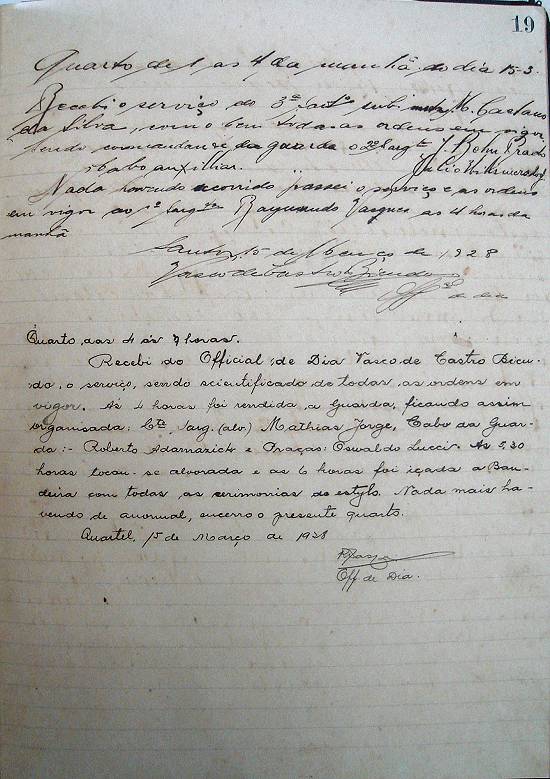 19
Quarto de 1 as 4 da manhã do dia 15-3
Recebi o serviço do 3º Caetano
da Silva, como bem todas as ordens em vigor
sendo commandante da guarda o 2º Sargtº J. Bohn Prado
cabo auxiliar Julio
Nada havendo occorrido passei o serviço e as ordens
em vigor ao 1º Sargto Raymundo Vasques as 4 horas da
manhã
Santos, 15 de Março de 1928
Vasco de Castro Bicudo
Offal de dia
Quarto, das 4 ás 7 horas.
Recebi do Official de Dia Vasco de Castro Bicu-
do, o serviço, sendo scientificado de todas, as ordens em
vigor. As 4 horas foi rendida, a Guarda, ficando assim
organisada: Cte, Sarg. (alo) Mathias Jorge, Cabo da Guar-
da:- Roberto Adamazick e Praças: Oswaldo Lucci. As 5,30
horas tocou-se alvorada e as 6 horas foi içada a Ban-
deira com todas, as cerimonias do estylo. Nada mais ha-
vendo de anormal, encerro o presente quarto.
Quartel, 15 de Março de 1928
Off de Dia.